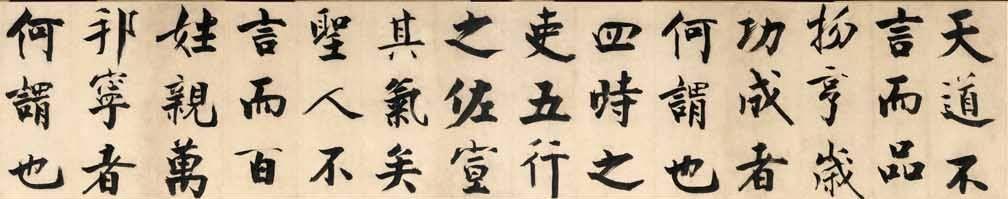 天道不
言而品
物亨歲
功成者
何謂也
四時之
吏五行
之佐宣
其氣矣
聖人不
言而百
姓親萬
邦寧者
何謂也